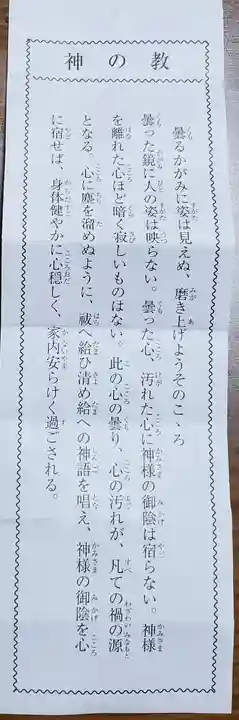 神の教
曇るかがみに姿は見えぬ、磨き上げようそのこゝろ
曇った鏡に人の姿は映らない。曇った心、汚れた心に神様の御陰は宿らない。神様
を離れた心ほど暗く寂しいものはない。此の心の曇り、心の汚れが、凡ての禍の源
となる。心に塵を溜めぬように、祓へ給ひ清め給への神語を唱え、神様の御陰を心
に宿せば、身体健やかに心穏しく、家内安らけく過ごされる。